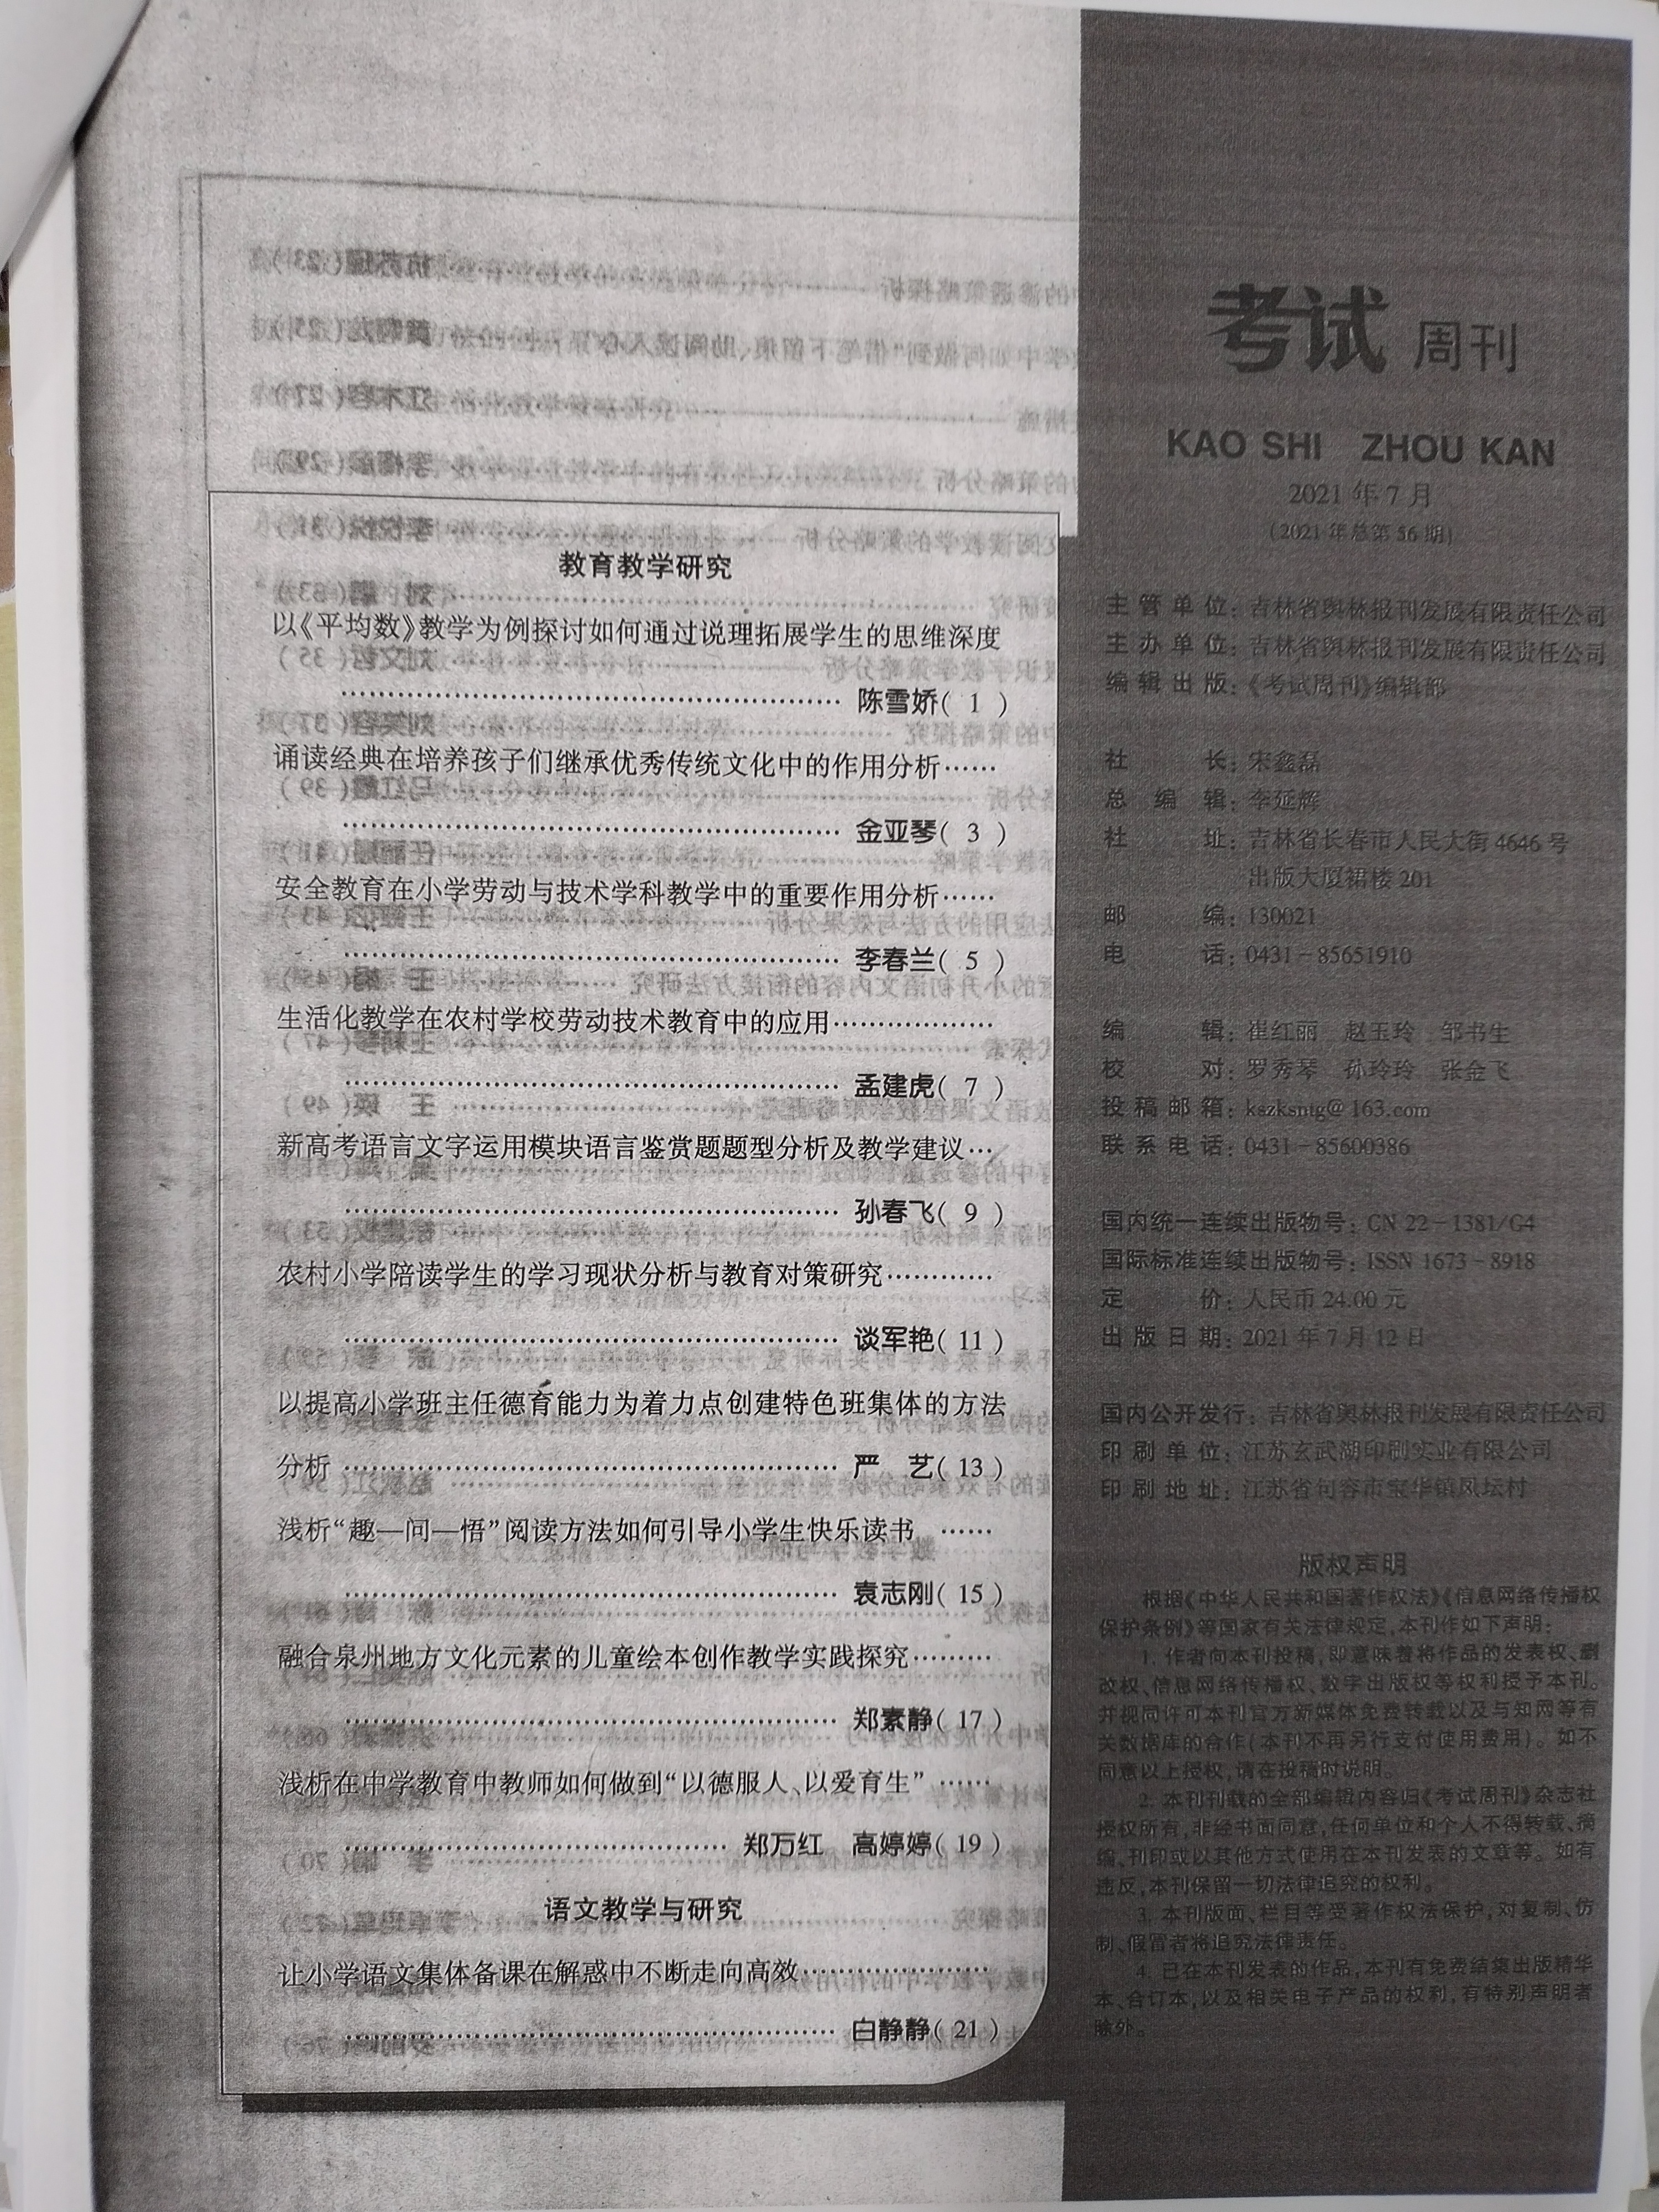 教育教学研究
以《平均数》教学为例探讨如何通过说理拓展学生的思维深度
………………………………………… 陈雪娇( 1 )
诵读经典在培养孩子们继承优秀传统文化中的作用分析……
………………………………………… 金亚琴( 3 )
安全教育在小学劳动与技术学科教学中的重要作用分析……
………………………………………… 李春兰( 5 )
生活化教学在农村学校劳动技术教育中的应用………………
………………………………………… 孟建虎( 7 )
新高考语言文字运用模块语言鉴赏题题型分析及教学建议…
………………………………………… 孙春飞( 9 )
农村小学陪读学生的学习现状分析与教育对策研究…………
………………………………………… 谈军艳( 11 )
以提高小学班主任德育能力为着力点创建特色班集体的方法
分析 ………………………………………… 严　艺( 13 )
浅析“趣—问—悟”阅读方法如何引导小学生快乐读书 ……
………………………………………… 袁志刚( 15 )
融合泉州地方文化元素的儿童绘本创作教学实践探究………
………………………………………… 郑素静( 17 )
浅析在中学教育中教师如何做到“以德服人、以爱育生” ……
……………………………… 郑万红　高婷婷( 19 )
语文教学与研究
让小学语文集体备课在解惑中不断走向高效………………
………………………………………… 白静静( 21 )
考试 周刊
KAO SHI ZHOU KAN
2021 年 7 月
(2021 年总第 56 期)
主管单位：吉林省舆林报刊发展有限责任公司
主办单位：吉林省舆林报刊发展有限责任公司
编辑出版：《考试周刊》编辑部
社　　长：宋鑫磊
总 编 辑：李延辉
社　　址：吉林省长春市人民大街 4646 号
出版大厦裙楼 201
邮　　编：130021
电　　话：0431－85651910
编　　辑：崔红丽　赵玉玲　邹书生
校　　对：罗秀琴　孙玲玲　张金飞
投稿邮箱：kszksntg@163.com
联系电话：0431－85600386
国内统一连续出版物号：CN 22－1381/G4
国际标准连续出版物号：ISSN 1673－8918
定　　价：人民币 24.00 元
出版日期：2021 年 7 月 12 日
国内公开发行：吉林省舆林报刊发展有限责任公司
印刷单位：江苏玄武湖印刷实业有限公司
印刷地址：江苏省句容市宝华镇凤坛村
版权声明
根据《中华人民共和国著作权法》《信息网络传播权
保护条例》等国家有关法律规定,本刊作如下声明：
1. 作者向本刊投稿,即意味着将作品的发表权、删
改权、信息网络传播权、数字出版权等权利授予本刊。
并视同许可本刊官方新媒体免费转载以及与知网等有
关数据库的合作(本刊不再另行支付使用费用)。如不
同意以上授权,请在投稿时说明。
2. 本刊刊载的全部编辑内容归《考试周刊》杂志社
授权所有,非经书面同意,任何单位和个人不得转载、摘
编、刊印或以其他方式使用在本刊发表的文章等。如有
违反,本刊保留一切法律追究的权利。
3. 本刊版面、栏目等受著作权法保护,对复制、仿
制、假冒者将追究法律责任。
4. 已在本刊发表的作品,本刊有免费结集出版精华
本、合订本,以及相关电子产品的权利,有特别声明者
除外。